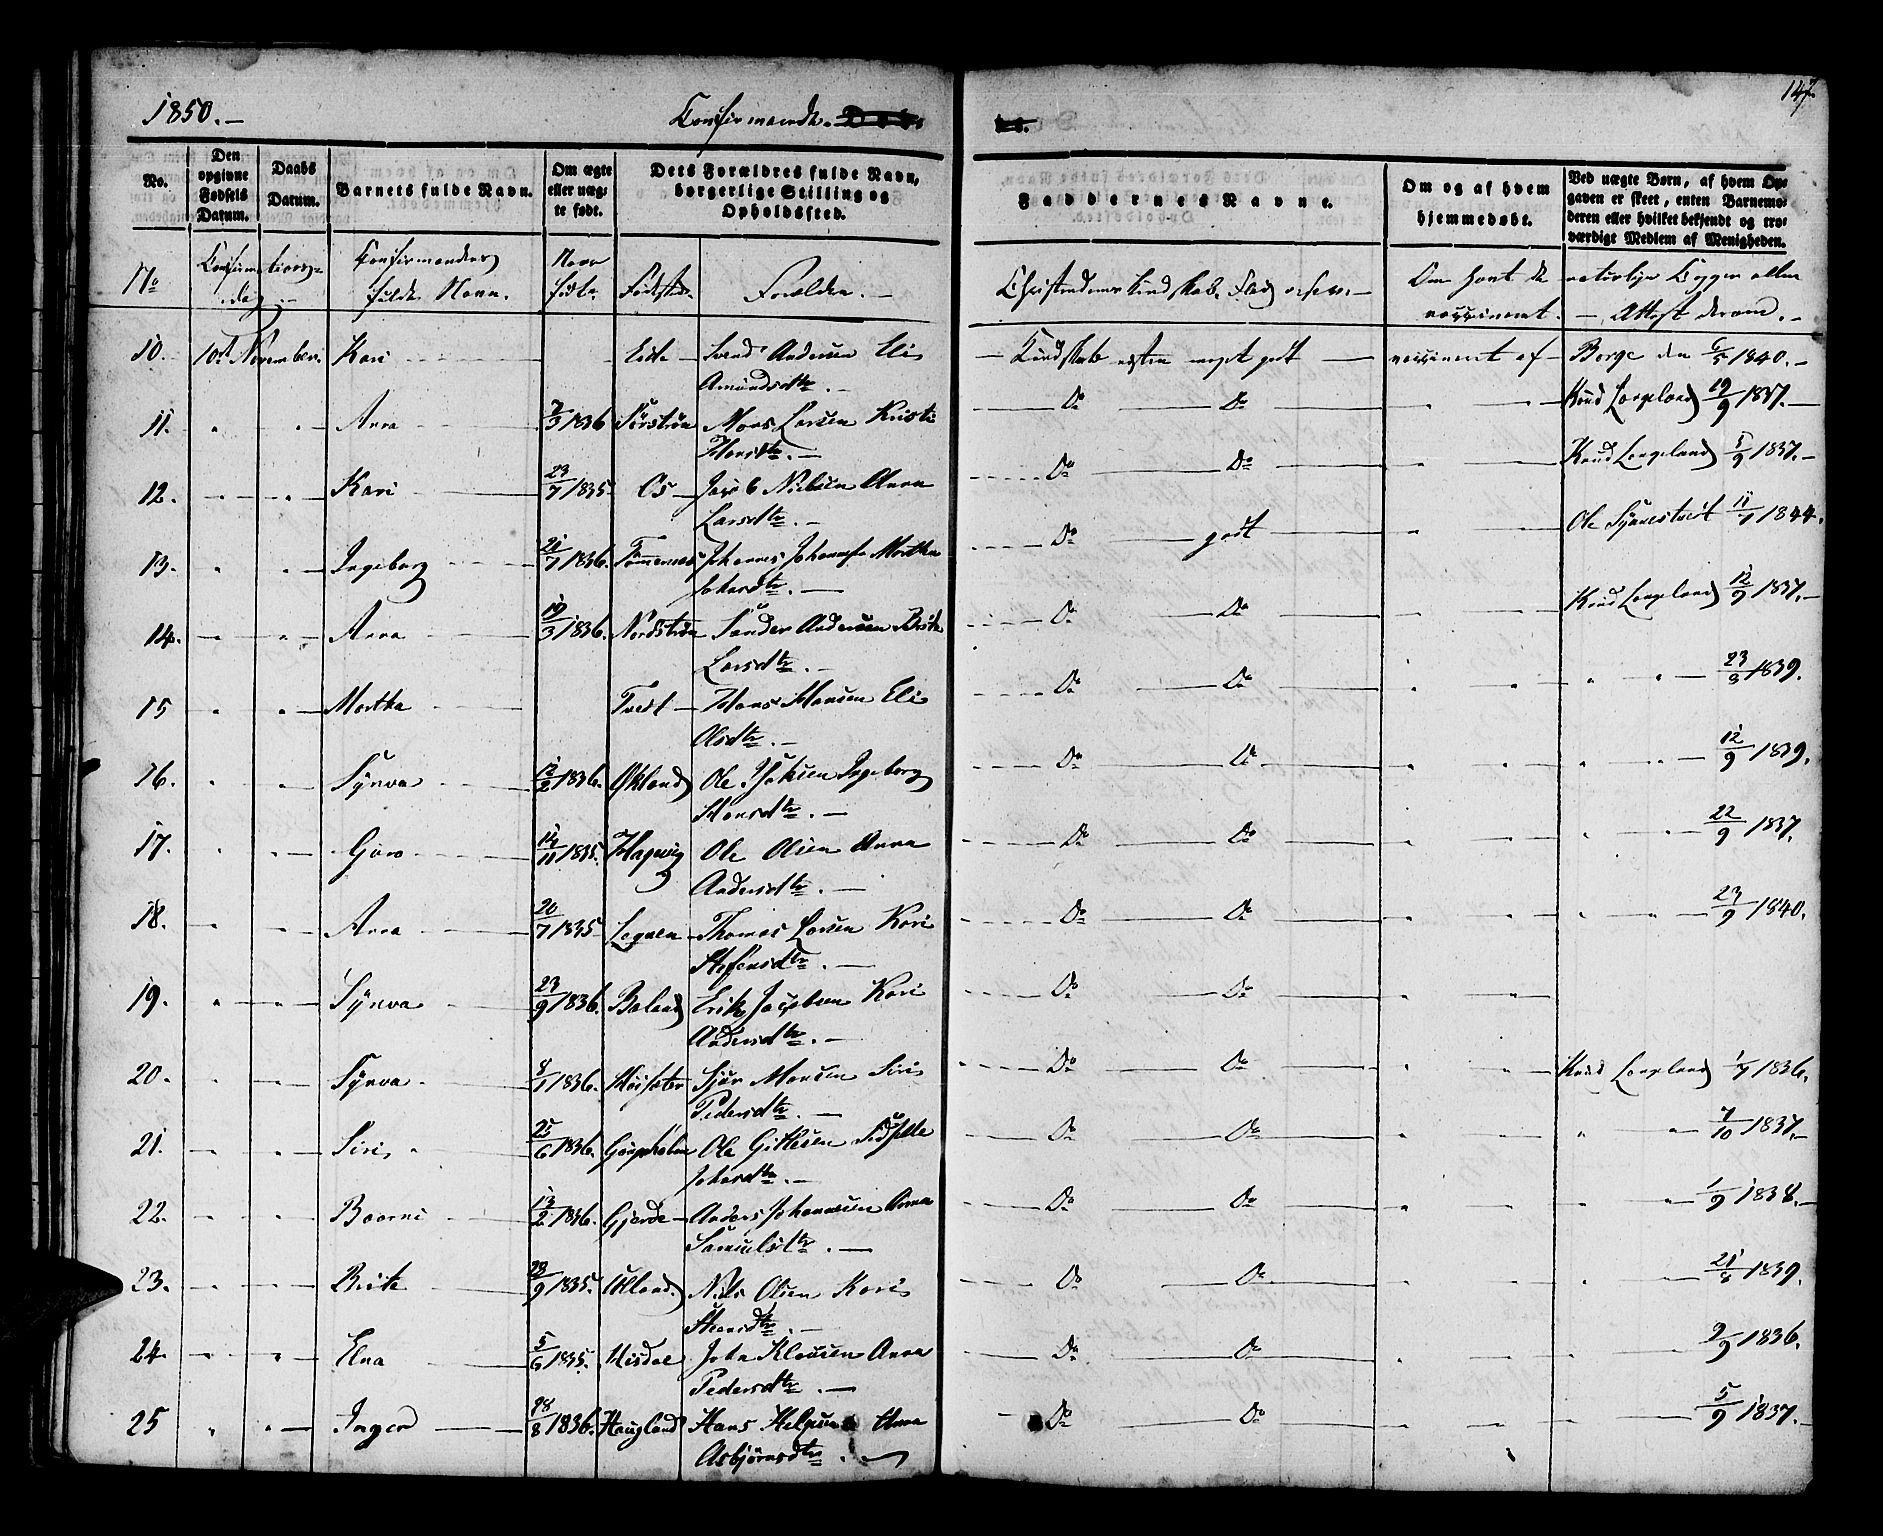 1850.-
Confirmerede.
147.
No.
Den opgivne Fødsels Datum.
Daabs Datum.
Barnets fulde Navn.
Om ægte eller uægte født.
Dets Forældres fulde Navn, borgerlige Stilling og Opholdssted.
Faddernes Navne.
Om og af hvem hjemmedøbt.
Ved uægte Børn, af hvem Opgaven er skeet, enten Barnemoderen eller hvilket bekjendt og troværdigt Medlem af Menigheden.
No Confirmations dag.- Confirmandens fulde Navn. Naar født. Fødested. Forældre.- Christendoms kundskab. Om havt de naturlige Kopper eller vaccineret.- Attest derom.-
10. 10d November. Kari Eide Svend Andersen Eli Amundsdtr.- Kundskab meget godt vaccineret af Borge den 6/5 1840.-
11. " " Anna 7/3 1836 Sørstrøn Mons Larsen Kristi Hansdtr.- Do Do " " Knud Langeland 19/9 1837.-
12. " " Kari 23/7 1835. Os Jacob Nielsen Anna Larsdtr.- Do Do " " Knud Langeland 5/9 1837.-
13. " " Ingeborg 21/7 1836. Tømmernæs Johannes Johannesen Martha Johansdtr.- Do godt " " Ole Synnestvedt 11/7 1844.
14. " " Anna 19/3 1836. Nordstrøn Sander Andersen Brita Larsdtr.- Do Do " " Knud Langeland 12/9 1837.-
15 " " Martha Tvedt Hans Monsen Eli Olsdtr.- Do Do " " " " 23/3 1839.
16. " " Synva 12/2 1836. Økland Ole Johnsen Ingeborg Hansdtr.- Do Do " " " " 12/9 1839.
17. " " Guro 14/11 1835. Hagevig Ole Olsen Anna Andersdtr.- Do Do " " " " 22/9 1837.
18. " " Anna 20/7 1835 Thomas Larsen Kari Stefensdtr.- Do Do " " " " 23/9 1840.
19. " " Synva 23/9 1836. Boland Erik Jacobsen Kari Andersdtr.- Do Do " "
20. " " Synva 8/1 1836. Høiseter Sjur Monsen Siri Pedersdtr.- Do Do " " Knud Langeland 1/7 1836.
21. " " Siri 25/6 1836. Ole Gittlesen Sidselle Johansdtr.- Do Do " " " " 7/10 1837.-
22. " " Baarni 13/2 1836. Gjerde Anders Johannesen Anna Samuelsdtr.- Do Do " " " " 1/9 1838.-
23. " " Brite 28/9 1835. Økland Niels Olsen Kari Steensdtr.- Do Do " " " " 21/8 1839.
24. " " Elna 5/6 1835. Hisdal John Klausen Anna Pedersdtr.- Do Do " " " " 2/9 1836.
25 " " Inger 28/8 1836. Haugland Hans Helgesen Anna Asbjørnsdtr.- Do Do " " " " 5/9 1837.-